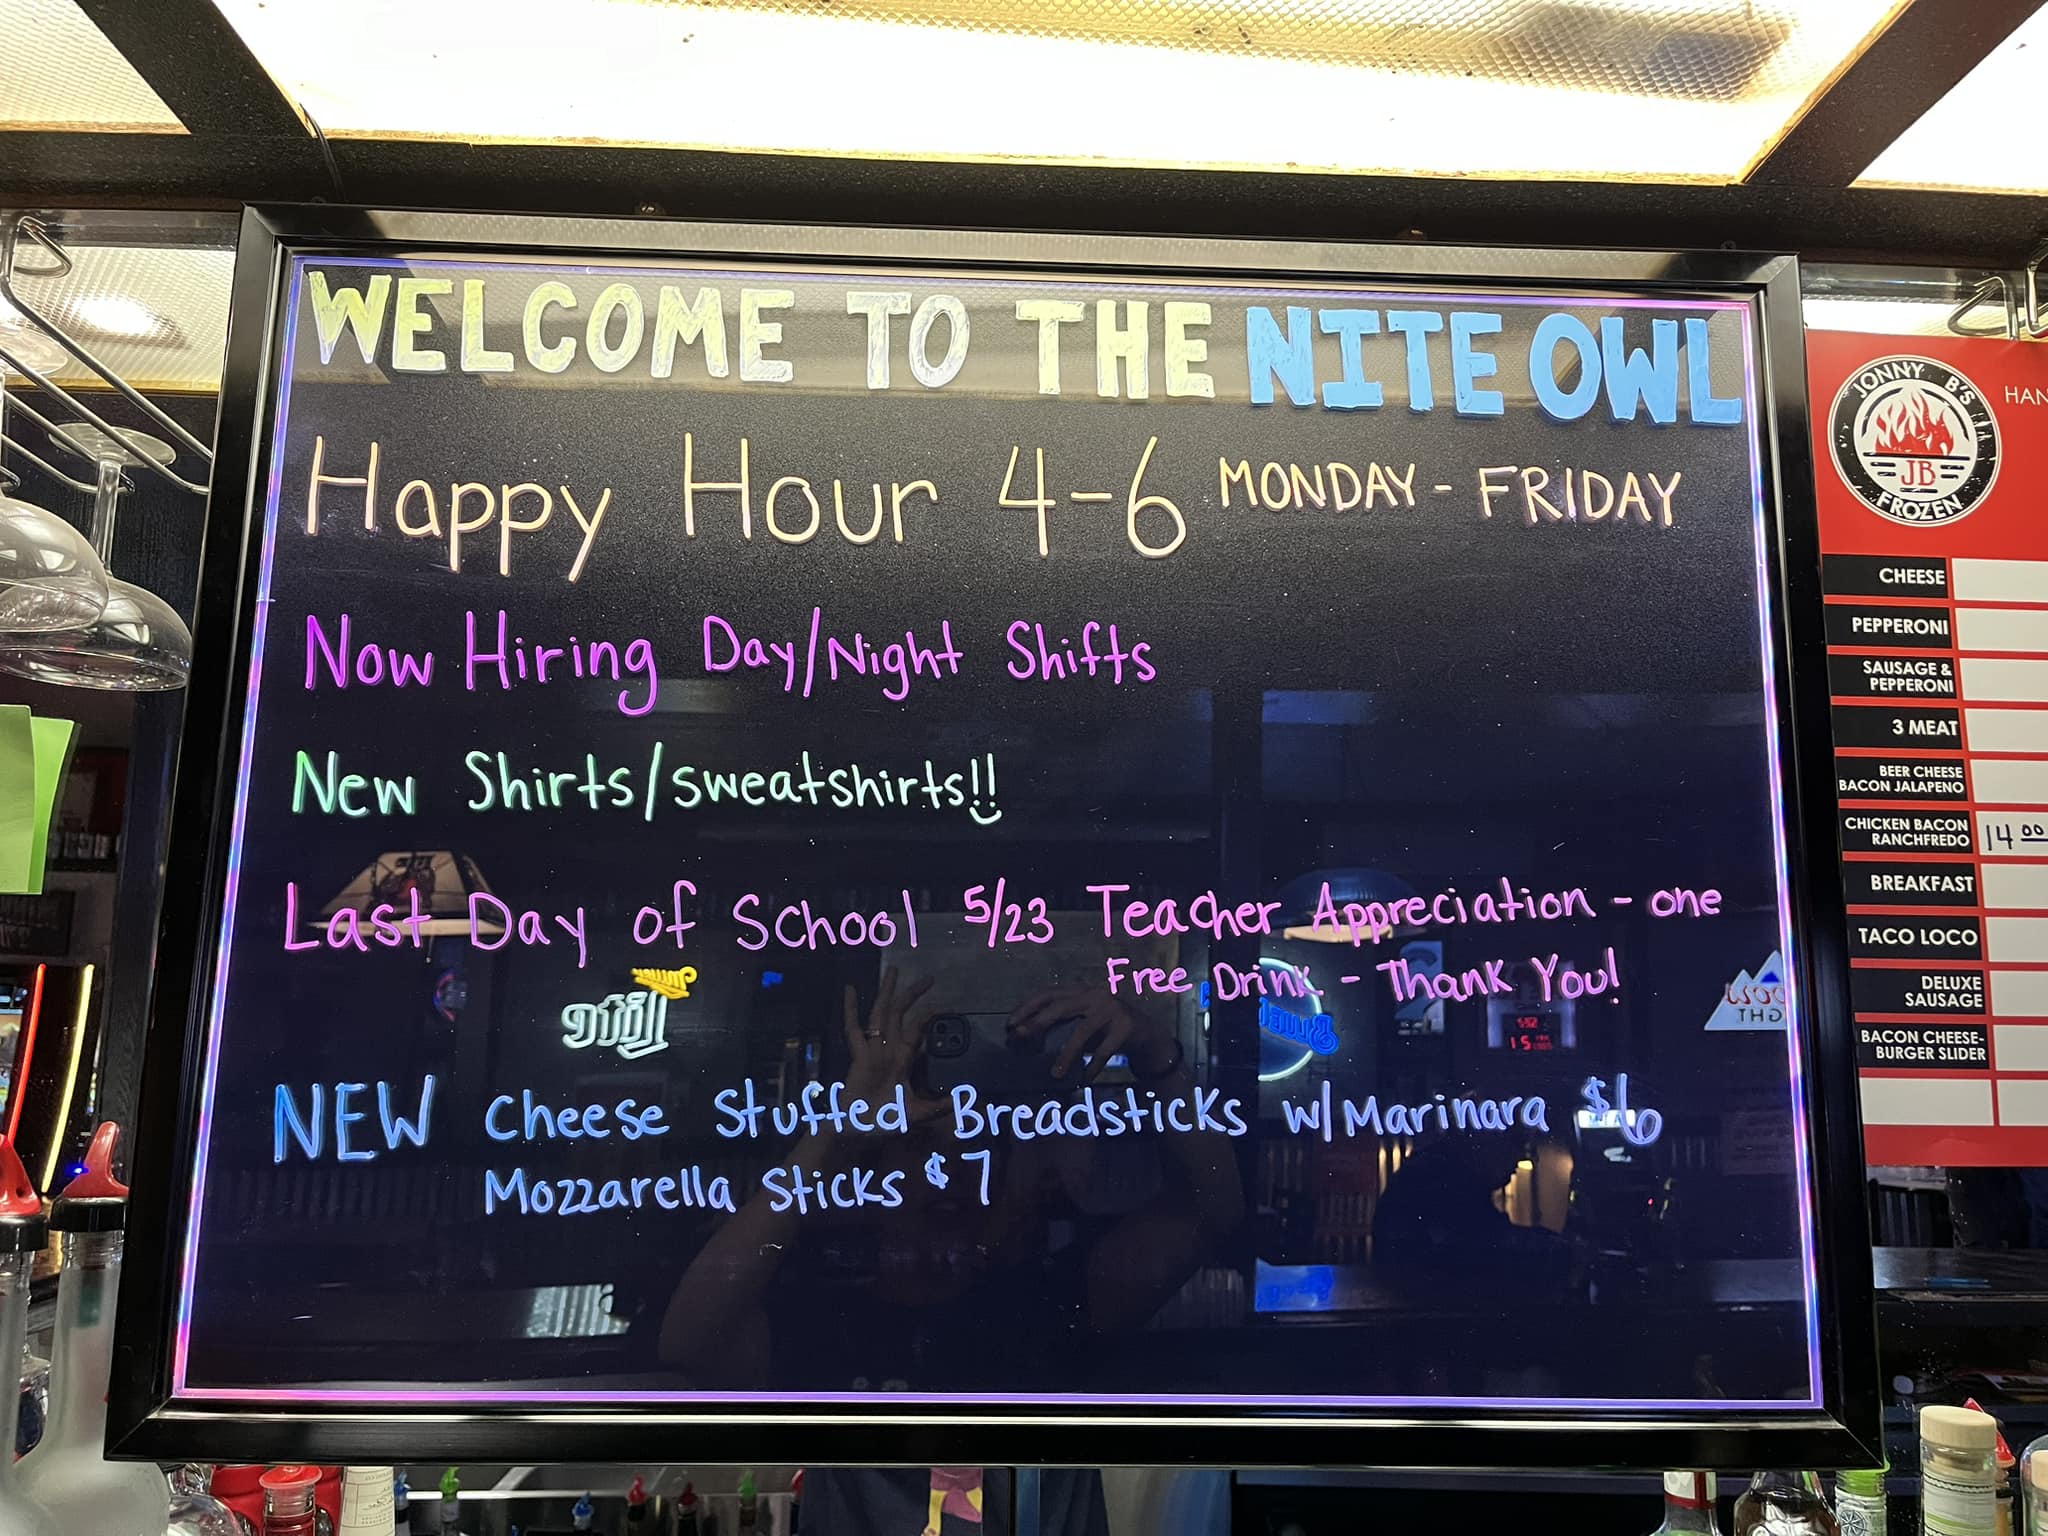 WELCOME TO THE NITE OWL
Happy Hour 4-6 MONDAY - FRIDAY
Now Hiring Day/Night Shifts
New Shirts/sweatshirts!!
Last Day of School 5/23 Teacher Appreciation - one
Free Drink - Thank You!
NEW Cheese Stuffed Breadsticks w/Marinara $6
Mozzarella Sticks $7
JONNY B'S
JB
FROZEN
HAN
CHEESE
PEPPERONI
SAUSAGE &
PEPPERONI
3 MEAT
BEER CHEESE
BACON JALAPENO
CHICKEN BACON
RANCHFREDO
14 00
BREAKFAST
TACO LOCO
DELUXE
SAUSAGE
BACON CHEESE-
BURGER SLIDER